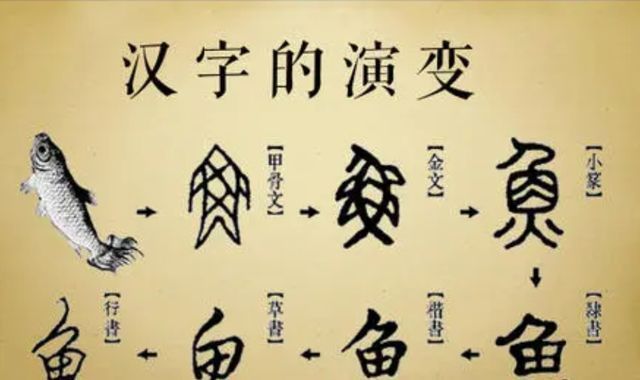 汉字的演变
【甲骨文】
【金文】
【小篆】
【隸書】
【楷書】
【草書】
【行書】